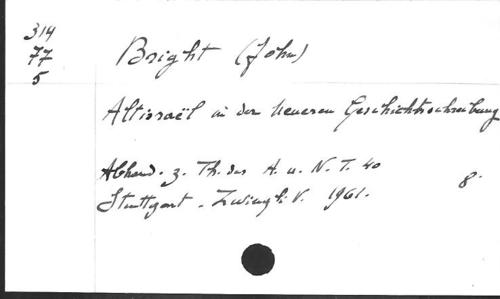 314
77
5
Bright (John)
Altisraël in der neueren Geschichtsschreibung
Abhand. z. Th. des A. u. N. T. 40
Stuttgart - Zwingli V. 1961.
8°